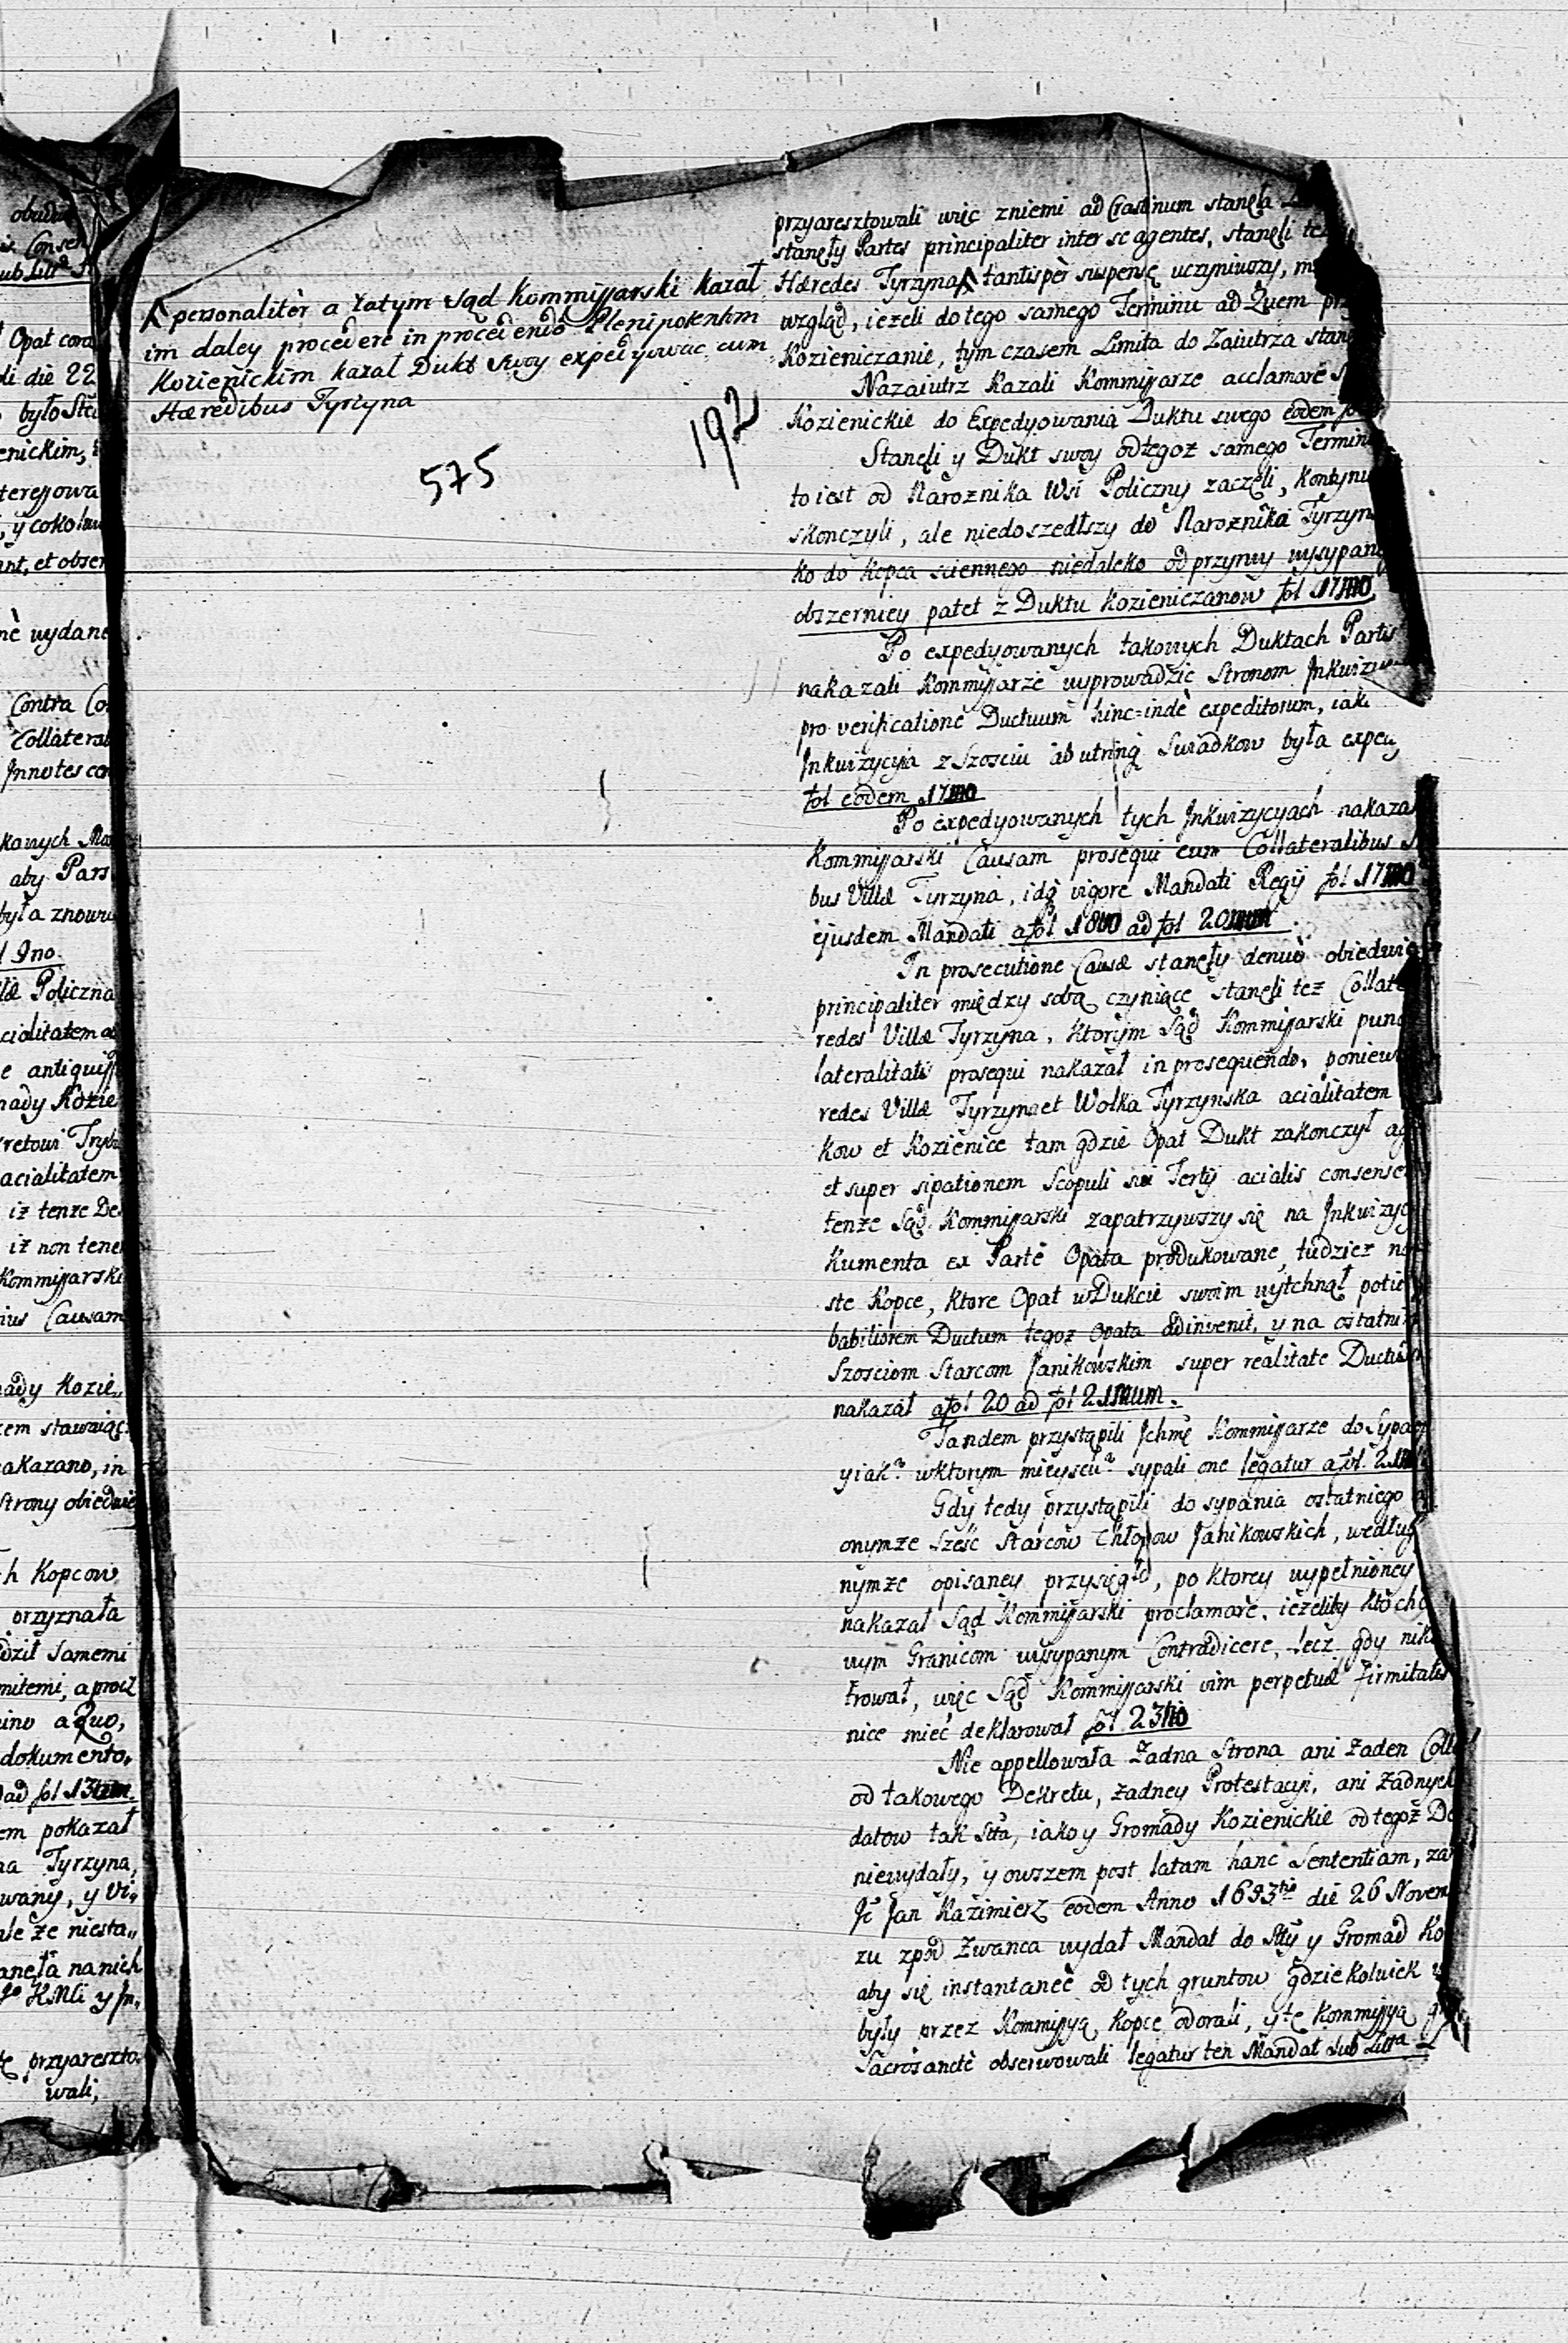 obudw
is Consen
sub Litt
Opat cora
di die 22
było Sta
enickim,
teressowa
y cokolw
ant, et obser
nè wydane
Contra Co
Collateral
Jnnotescen
kowych
aby Pars
była znowu
9no.
læ Policzna
cialitatem a
e antiquiss
mady Kozie
kretowi Tryb
acialitatem
iż tenże De
iż non tene
Kommissarski
ius Causam
mady Kozie,,
zem stawaiąc
nakazano, in
Strony obiedwie
h Kopcow
przyznała
dził samemi
mitemi, a procz
ino a Quo,
dokumento,
ad fol 13
em pokazał
na Tyrzyna,
wany, y Vi,
ale że niesta,,
anęła na nich
Kmli y Jn,
przyareszto,
wali,
personalitèr a zatym Sąd Kommissarski kazał
im daley procedere in procedendo Plenipotentm
Kozienickim kazał Dukt swoy expedyować cum
Hæredibus Tyrzyna
192
575
przyaresztowali więc zniemi ad Crastinum stanęła
stanęły Partes principaliter inter se agentes, stanęli te
Hæredes Tyrzyna tantispèr suspensę uczyniwszy, m
wzgląd, ieżeli do tego samego Terminu ad Quem prz
Kozieniczanie, tym czasem Limita do Zaiutrza stan
Nazaiutrz Kazali Kommissarze acclamare
Kozienickie do Expedyowania Duktu swego eodem fol
Stanęli y Dukt swoy od tegoż samego Termin
to iest od Narożnika Wsi Policzny zaczęli, kontynu
skonczyli, ale niedoszedłszy do Narożnika Tyrzyn
ko do kopca sciennego niedaleko od przymy wysypane
obszerniey patet z Duktu Kozieniczanow fol 17mo
Po expedyowanych takowych Duktach Partis
nakazali Kommissarze wyprowadzić Stronom Jnkwizy
pro verificatione Ductuum hinc=inde expeditorum, iak
Jnkwizycyia z Szosciu ab utrinq swiadkow była exped
fol eodem 17mo
Po expedyowanych tych Jnkwizycyach nakaza
Kommissarski Causam prosequi cum Collateralibus
bus Villæ Tyrzyna, idq vigore Mandati Regij fol 17mo
ejusdem Mandati a fol 18vo ad fol 20mum.
In prosecutione Causæ stanęły denuo obiedwie
principaliter między sobą czyniące stanęli też Collate
redes Villæ Tyrzyna, ktorym Sąd Kommissarski punc
lateralitatis prosequi nakazał in prosequendo, poniewa
redes Villæ Tyrzyna et Wolka Tyrzynska acialitatem
kow et Kozienice tam gdzie Opat Dukt zakonczył ag
et super sipationem Scopuli sui Tertij acialis consense
tenże Sąd Kommissarski zapatrzywszy się na Jnkwizyc
kumenta ex Parte Opata produkowane, tudzież na
ste Kopce, ktore Opat w Dukcie swoim wytchnął potio
babiliorem Ductum tegoż Opata adinvenit, y na ostatni
Szosciom Starcom Janikowskim super realitate Ductus
nakazał a fol 20 ad fol 21mum.
Tandem przystąpili Jchmę Kommissarze do Sypan
y iak? w ktorym mieyscu? sypali one legatur a fol 21
Gdy tedy przystąpili do sypania ostatniego
onymże szesć Starcow Chłopow Janikowskich, według
nymże opisaney przysięgło, po ktorey wypełnioney
nakazał Sąd Kommissarski proclamare, ieżeliby kto chc
wym Granicom wysypanym Contradicere, lecz gdy nik
trował, więc Sąd Kommissarski vim perpetuæ firmitatis
nice mieć deklarował fol 23tio
Nie appellowała żadna Strona ani żaden Coll
od takowego Dekretu, żadney Protestacyi, ani żadnych
datow tak Stta, iako y Gromady Kozienickie od tegoż De
niewydały, y owszem post latam hanc Sententiam, za
Jc Jan Kazimierz eodem Anno 1693tio die 26 Novem
zu zpod Zwanca wydał Mandat do Stty y Gromad Ko
aby się instantanee od tych gruntow gdziekolwiek
były przez Kommissyą kopce odorali, y tę Kommissyą
Sacrosancte obserwowali legatur ten Mandat sub Litta